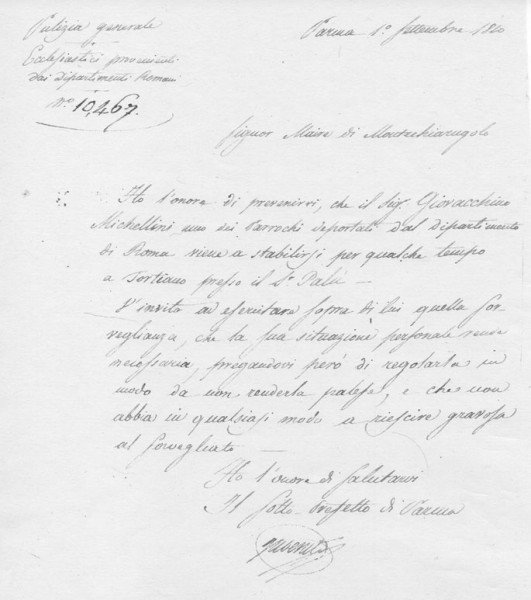 Pulizia generale
Ecclesiastici provenienti
dai Dipartimenti Romani
N.o 10,467.
Parma 1.o Settembre 1810
Signor Maire di Montechiarugolo
Ho l'onore di prevenirvi, che il Sig. Giovacchino
Michellini, uno dei Parrochi deportati dal dipartimento
di Roma viene a stabilirsi per qualche tempo
a Tortiano presso il S.r Palù —
V'invito ad esercitare sopra di lui quella sor-
veglianza, che la sua situazione personale rende
necessaria, pregandovi però di regolarla in
modo da non renderla palese, e che non
abbia in qualsiasi modo a riescire gravosa
al sorvegliato —
Ho l'onore di salutarvi
Il Sotto-Prefetto di Parma